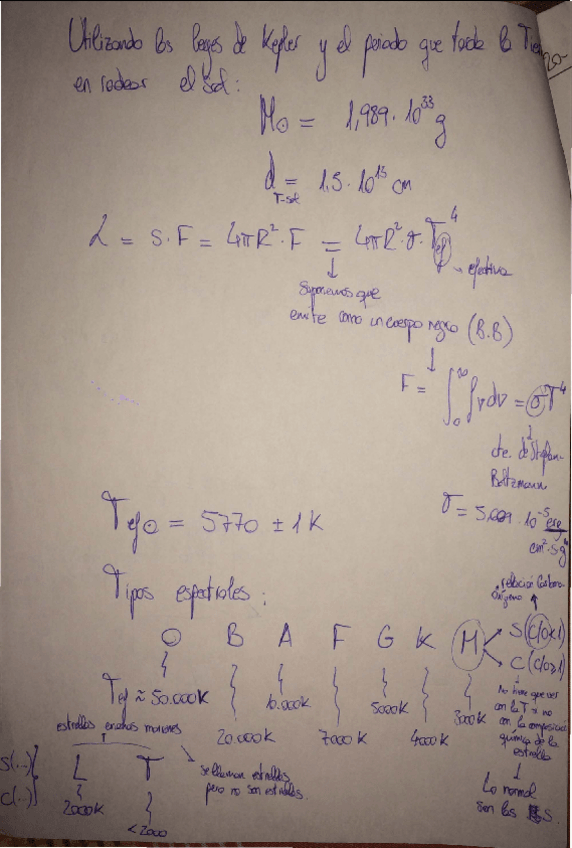 Utilizando las leyes de Kepler y el periodo que tarda la Tierra
en rodear el Sol:
M⊙ = 1,989·10³³ g
d T-sol = 1.5·10¹³ cm
L = S·F = 4πR²·F = 4πR²·σ·T⁴ef
efectiva
Suponemos que
emite como un cuerpo negro (B.B)
F = ∫₀^∞ fνdν = σT⁴
cte. de Stefan-
Boltzmann
σ = 10⁻⁵ erg
cm²·s
Tef⊙ = 5770 ± 1 K
Tipos espectrales:
relación Carbono
oxígeno
O B A F G K M
S (C/O<1)
C (C/O≥1)
Tef ≈ 50.000K 10.000K 5000K 3000K
20.000K 7000K 4000K
No tiene que ver
con la T sino
con la composición
química de la
estrella
Lo normal
son las S.
estrellas enanas marrones
L T
se llaman estrellas
pero no son estrellas.
S(...)
C(...)
2000K
<2000